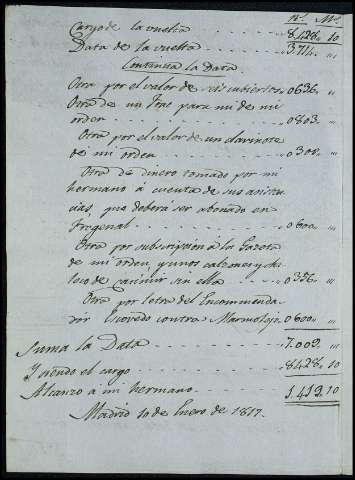 Rs. Ms.
Cargo de la vuelta 8,428,, 10
Data de la vuelta 3.714,, ,,
Continua la Data.
Otra por el valor de seis cubiertos 0636,, ,,
Otra de un Frac para mi de mi
orden 0803,, ,,
Otra por el valor de un clarinete
de mi orden 0300,, ,,
Otra de dinero tomado por mi
hermano á cuenta de sus asisten-
cias, que deberá ser abonado en
Fregenal 0600,, ,,
Otra por subscripcion á la Gazeta
de mi orden, y unos calzones y cha-
leco de casimir sin ella 0356,, ,,
Otra por letra del Encomienda-
dor Escovedo contra Marmolejo 0600,, ,,
Suma la Data 7.009,, ,,
Y siendo el cargo 8428,, 10
Alcanzo á mi hermano 1,419,, 10
Madrid 10 de Enero de 1817.